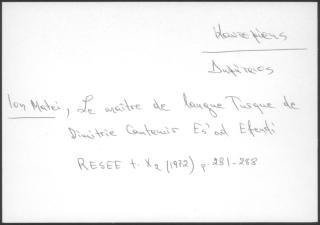 Καντεμίρης
Δημήτριος
Ion Matei, Le maître de langue Turque de
Dimitrie Cantemir Es'ad Efendi
RESEE t. X₂ (1972) p. 281-288